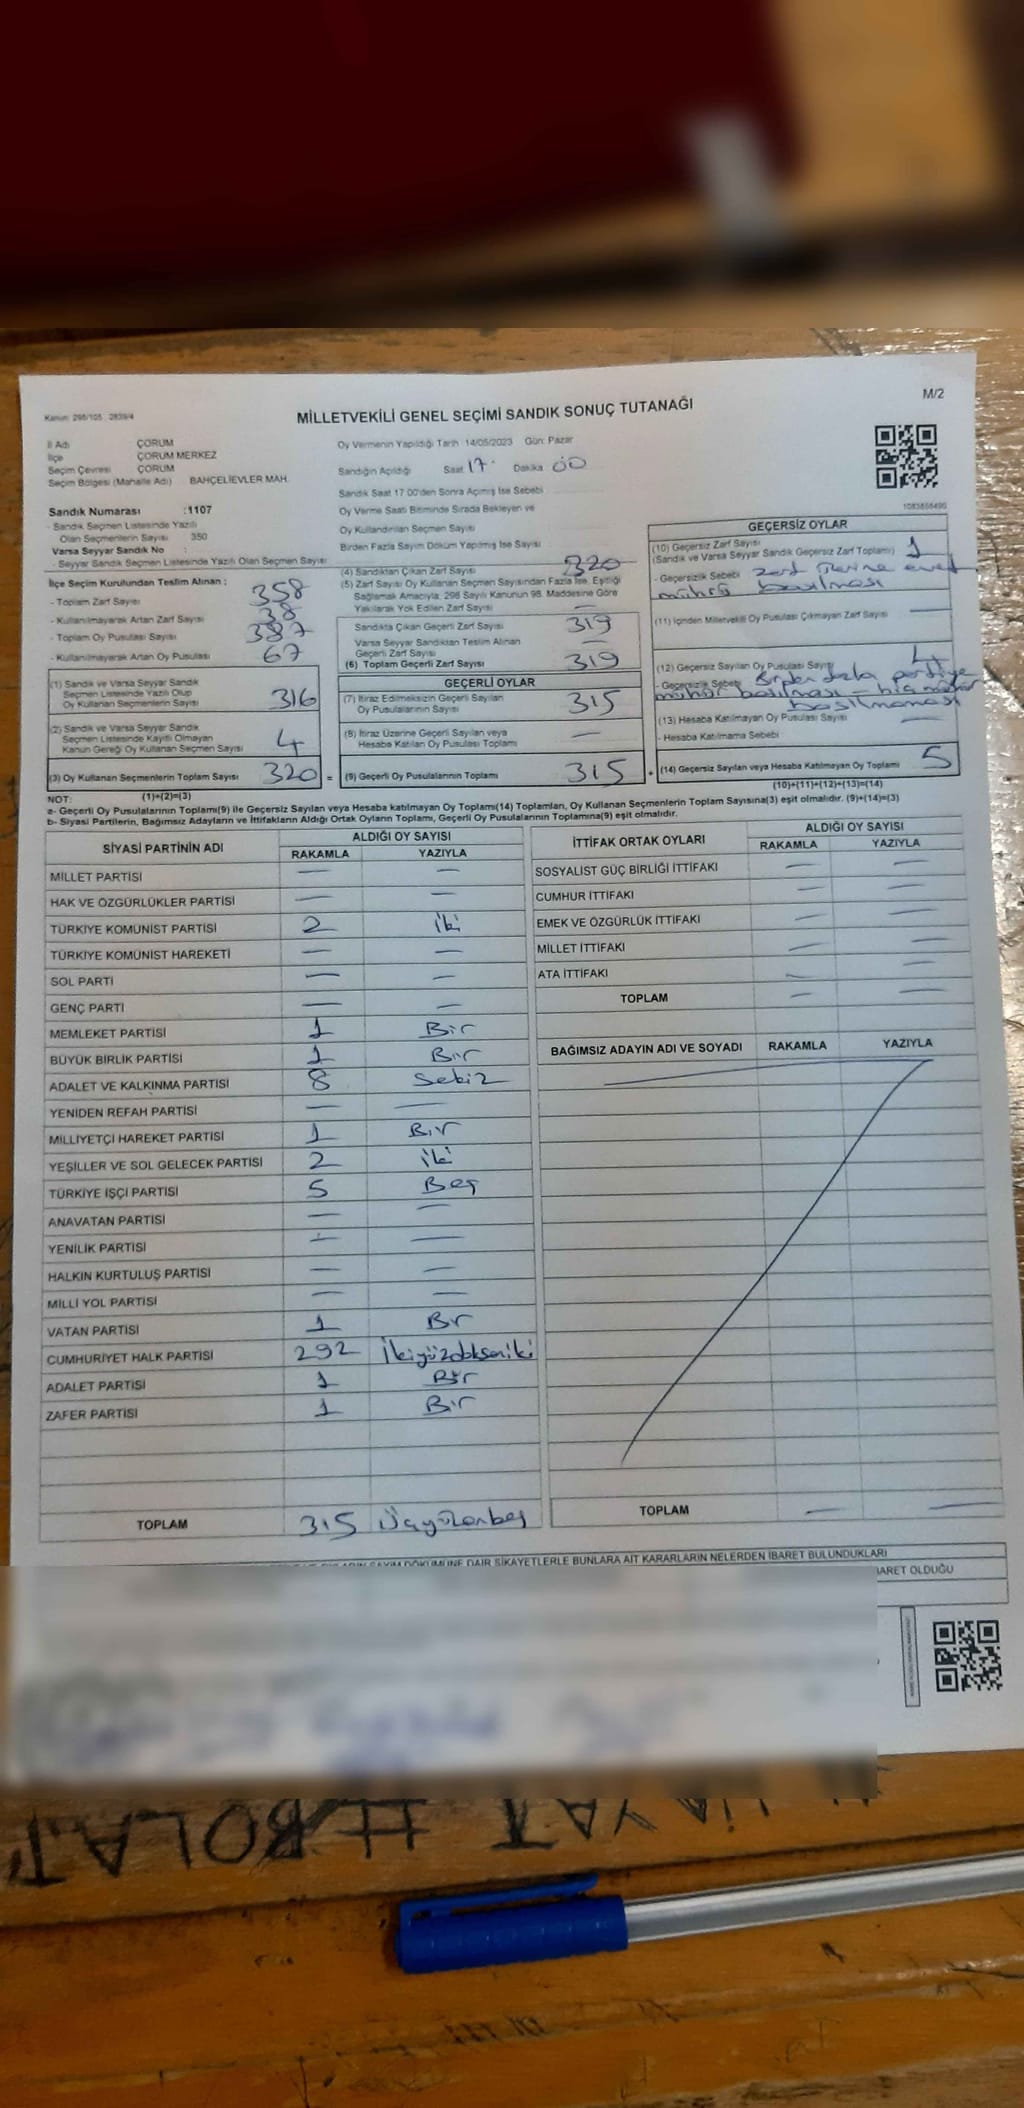 M/2
Kanun: 298/105 , 2839/4
MİLLETVEKİLİ GENEL SEÇİMİ SANDIK SONUÇ TUTANAĞI
İl Adı ÇORUM
İlçe ÇORUM MERKEZ
Seçim Çevresi ÇORUM
Seçim Bölgesi (Mahalle Adı) BAHÇELİEVLER MAH.
Sandık Numarası :1107
- Sandık Seçmen Listesinde Yazılı
Olan Seçmenlerin Sayısı 350
Varsa Seyyar Sandık No :
- Seyyar Sandık Seçmen Listesinde Yazılı Olan Seçmen Sayısı
İlçe Seçim Kurulundan Teslim Alınan ;
- Toplam Zarf Sayısı 358
- Kullanılmayarak Artan Zarf Sayısı 38
- Toplam Oy Pusulası Sayısı 387
- Kullanılmayarak Artan Oy Pusulası 67
(1) Sandık ve Varsa Seyyar Sandık
Seçmen Listesinde Yazılı Olup
Oy Kullanan Seçmenlerin Sayısı 316
(2) Sandık ve Varsa Seyyar Sandık
Seçmen Listesinde Kayıtlı Olmayan
Kanun Gereği Oy Kullanan Seçmen Sayısı 4
(3) Oy Kullanan Seçmenlerin Toplam Sayısı 320 =
(1)+(2)=(3)
Oy Vermenin Yapıldığı Tarih :14/05/2023 Gün: Pazar
Sandığın Açıldığı Saat 17 Dakika 00
Sandık Saat 17:00'den Sonra Açımış İse Sebebi
Oy Verme Saati Bitiminde Sırada Bekleyen ve
Oy Kullandırılan Seçmen Sayısı
Birden Fazla Sayım Döküm Yapılmış İse Sayısı :
(4) Sandıktan Çıkan Zarf Sayısı 320
(5) Zarf Sayısı Oy Kullanan Seçmen Sayısından Fazla İse, Eşitliği
Sağlamak Amacıyla, 298 Sayılı Kanunun 98. Maddesine Göre
Yakılarak Yok Edilen Zarf Sayısı —
Sandıkta Çıkan Geçerli Zarf Sayısı 319
Varsa Seyyar Sandıktan Teslim Alınan
Geçerli Zarf Sayısı —
(6) Toplam Geçerli Zarf Sayısı 319
GEÇERLİ OYLAR
(7) İtiraz Edilmeksizin Geçerli Sayılan
Oy Pusulalarının Sayısı 315
(8) İtiraz Üzerine Geçerli Sayılan veya
Hesaba Katılan Oy Pusulası Toplamı —
(9) Geçerli Oy Pusulalarının Toplamı 315 +
1083856490
GEÇERSİZ OYLAR
(10) Geçersiz Zarf Sayısı
(Sandık ve Varsa Seyyar Sandık Geçersiz Zarf Toplamı) 1
- Geçersizlik Sebebi zarf üzerine evet
mührü basılması
(11) İçinden Milletvekili Oy Pusulası Çıkmayan Zarf Sayısı —
(12) Geçersiz Sayılan Oy Pusulası Sayısı 4
- Geçersizlik Sebebi Birden fazla partiye
mühür basılması - hiç mühür
basılmaması
(13) Hesaba Katılmayan Oy Pusulası Sayısı —
- Hesaba Katılmama Sebebi
(14) Geçersiz Sayılan veya Hesaba Katılmayan Oy Toplamı 5
(10)+(11)+(12)+(13)=(14)
NOT:
a- Geçerli Oy Pusulalarının Toplamı(9) ile Geçersiz Sayılan veya Hesaba katılmayan Oy Toplamı(14) Toplamları, Oy Kullanan Seçmenlerin Toplam Sayısına(3) eşit olmalıdır. (9)+(14)=(3)
b- Siyasi Partilerin, Bağımsız Adayların ve İttifakların Aldığı Ortak Oyların Toplamı, Geçerli Oy Pusulalarının Toplamına(9) eşit olmalıdır.
SİYASİ PARTİNİN ADI ALDIĞI OY SAYISI
RAKAMLA YAZIYLA
MİLLET PARTİSİ — —
HAK VE ÖZGÜRLÜKLER PARTİSİ — —
TÜRKİYE KOMÜNİST PARTİSİ 2 iki
TÜRKİYE KOMÜNİST HAREKETİ — —
SOL PARTİ — —
GENÇ PARTİ — —
MEMLEKET PARTİSİ 1 Bir
BÜYÜK BİRLİK PARTİSİ 1 Bir
ADALET VE KALKINMA PARTİSİ 8 Sekiz
YENİDEN REFAH PARTİSİ — —
MİLLİYETÇİ HAREKET PARTİSİ 1 Bir
YEŞİLLER VE SOL GELECEK PARTİSİ 2 iki
TÜRKİYE İŞÇİ PARTİSİ 5 Beş
ANAVATAN PARTİSİ — —
YENİLİK PARTİSİ — —
HALKIN KURTULUŞ PARTİSİ — —
MİLLİ YOL PARTİSİ — —
VATAN PARTİSİ 1 Bir
CUMHURİYET HALK PARTİSİ 292 İkiyüzdoksaniki
ADALET PARTİSİ 1 Bir
ZAFER PARTİSİ 1 Bir
TOPLAM 315 Üçyüzonbeş
İTTİFAK ORTAK OYLARI ALDIĞI OY SAYISI
RAKAMLA YAZIYLA
SOSYALİST GÜÇ BİRLİĞİ İTTİFAKI — —
CUMHUR İTTİFAKI — —
EMEK VE ÖZGÜRLÜK İTTİFAKI — —
MİLLET İTTİFAKI — —
ATA İTTİFAKI — —
TOPLAM — —
BAĞIMSIZ ADAYIN ADI VE SOYADI RAKAMLA YAZIYLA
TOPLAM — —
SAYIM DÖKÜMÜNE DAİR ŞİKAYETLERLE BUNLARA AİT KARARLARIN NELERDEN İBARET BULUNDUKLARI
OLDUĞU
BOLAT